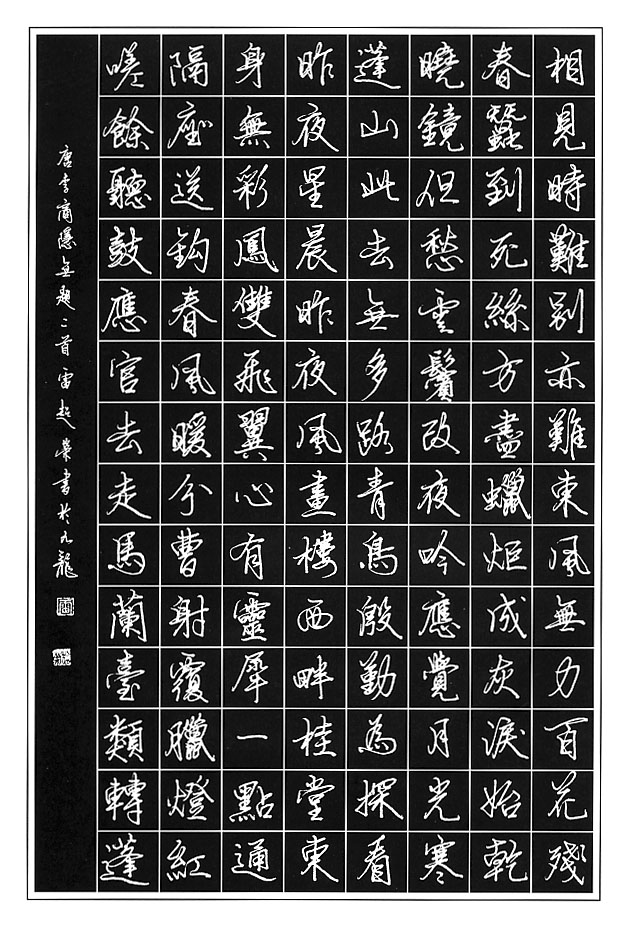 相見時難別亦難東風無力百花殘
春蠶到死絲方盡蠟炬成灰淚始乾
曉鏡但愁雲鬢改夜吟應覺月光寒
蓬山此去無多路青鳥殷勤為探看
昨夜星晨昨夜風畫樓西畔桂堂東
身無彩鳳雙飛翼心有靈犀一點通
隔座送鈎春風暖分曹射覆臘燈紅
嗟餘聽鼓應官去走馬蘭臺類轉蓬
唐李商隱無題二首雷超榮書於九龍